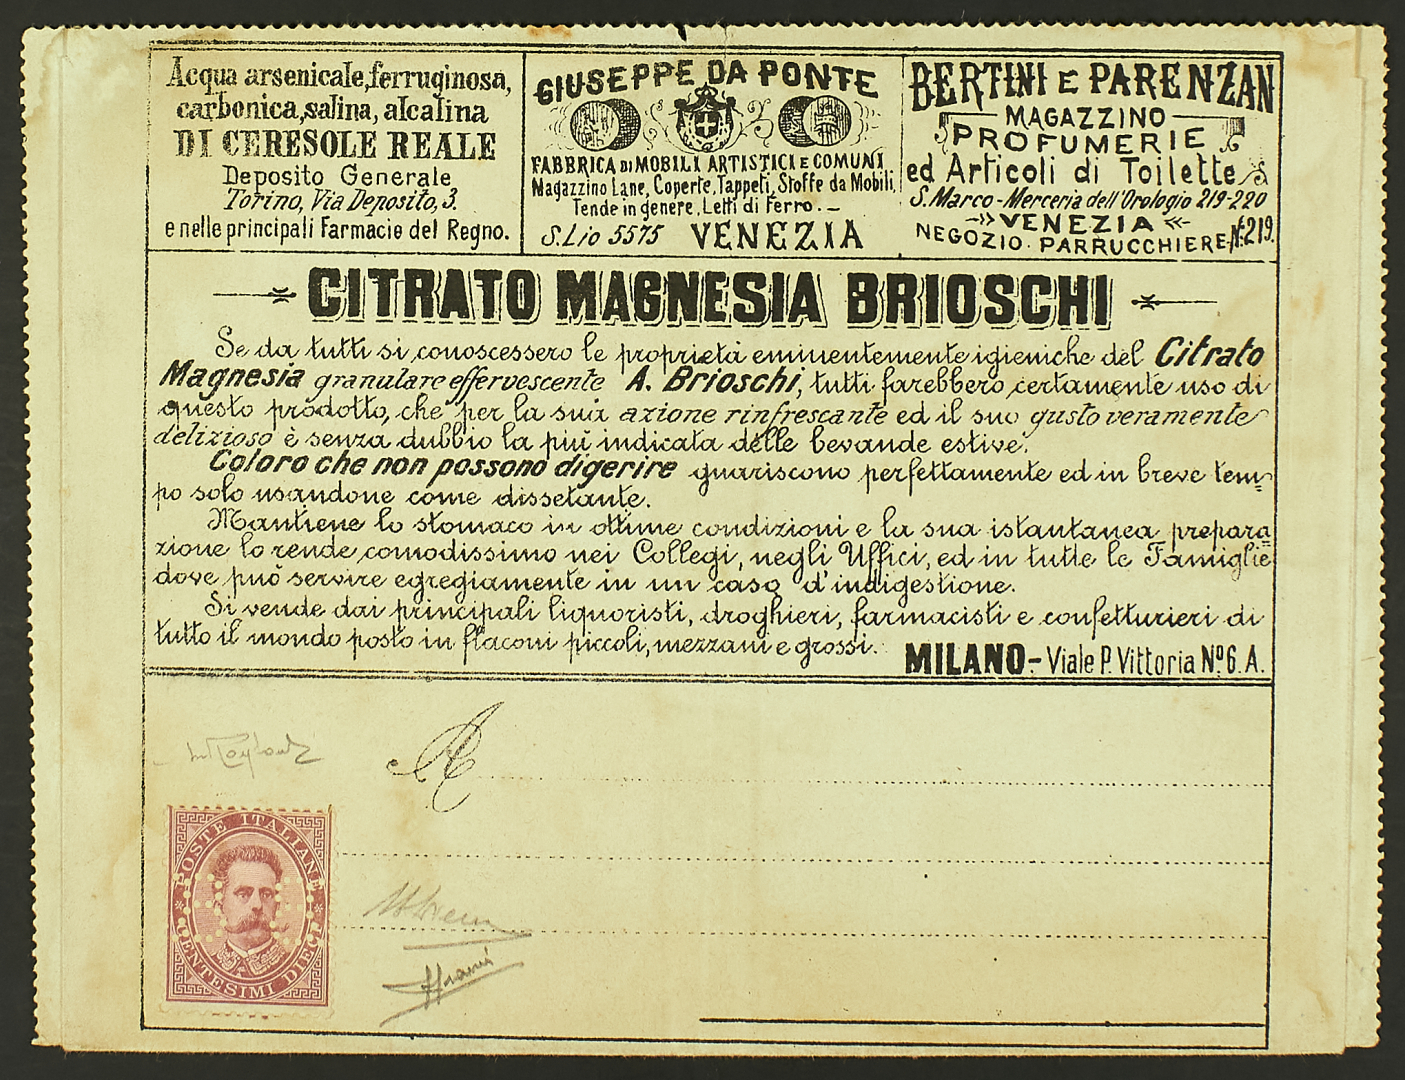 Acqua arsenicale, ferruginosa,
carbonica, salina, alcalina
DI CERESOLE REALE
Deposito Generale
Torino, Via Deposito, 3.
e nelle principali Farmacie del Regno.
GIUSEPPE DA PONTE
FABBRICA DI MOBILI ARTISTICI E COMUNI
Magazzino Lane, Coperte, Tappeti, Stoffe da Mobili,
Tende in genere, Letti di Ferro. -
S. Lio 5575 VENEZIA
BERTINI E PARENZAN
MAGAZZINO
PROFUMERIE
ed Articoli di Toilette
S. Marco - Merceria dell'Orologio 219-220
VENEZIA
NEGOZIO. PARRUCCHIERE Nº 219.
CITRATO MAGNESIA BRIOSCHI
Se da tutti si conoscessero le proprietà eminentemente igieniche del Citrato
Magnesia granulare effervescente A. Brioschi, tutti farebbero certamente uso di
questo prodotto, che per la sua azione rinfrescante ed il suo gusto veramente
delizioso è senza dubbio la più indicata delle bevande estive.
Coloro che non possono digerire guariscono perfettamente ed in breve tem=
po solo usandone come dissetante.
Mantiene lo stomaco in ottime condizioni e la sua istantanea prepara=
zione lo rende comodissimo nei Collegi, negli Uffici, ed in tutte le Famiglie
dove può servire egregiamente in un caso d'indigestione.
Si vende dai principali liquoristi, droghieri, farmacisti e confetturieri di
tutto il mondo posto in flaconi piccoli, mezzani e grossi.
MILANO - Viale P. Vittoria Nº 6. A.
A
POSTE ITALIANE
CENTESIMI DIECI